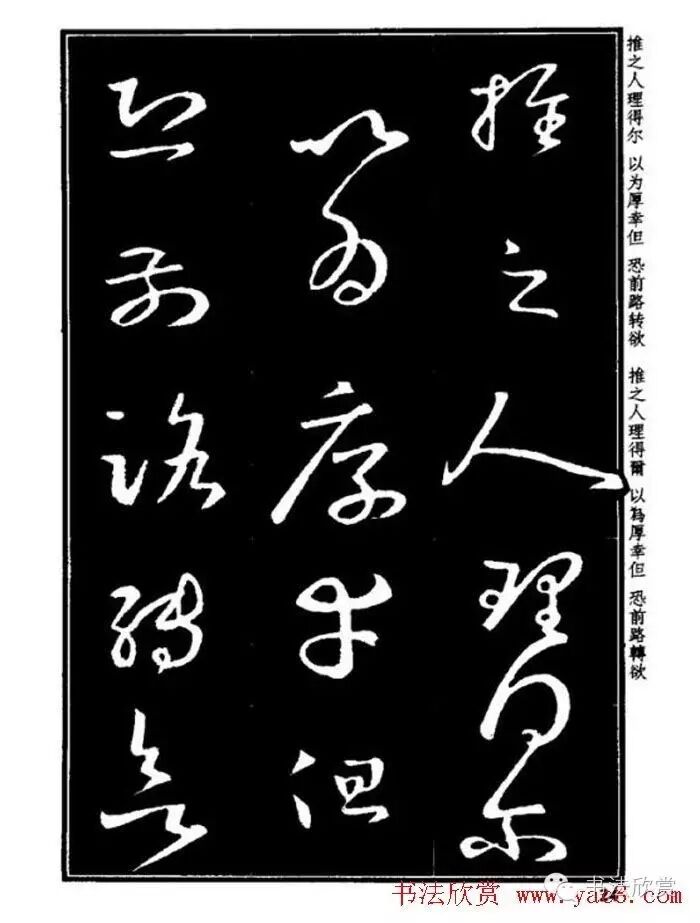 推之人理得尔 以为厚幸但 恐前路转欲
推之人理得爾 以為厚幸但 恐前路轉欲
推之人理得尔
以為厚幸但
恐前路轉欲
书法欣赏 www.yac8.com
书法欣赏
24